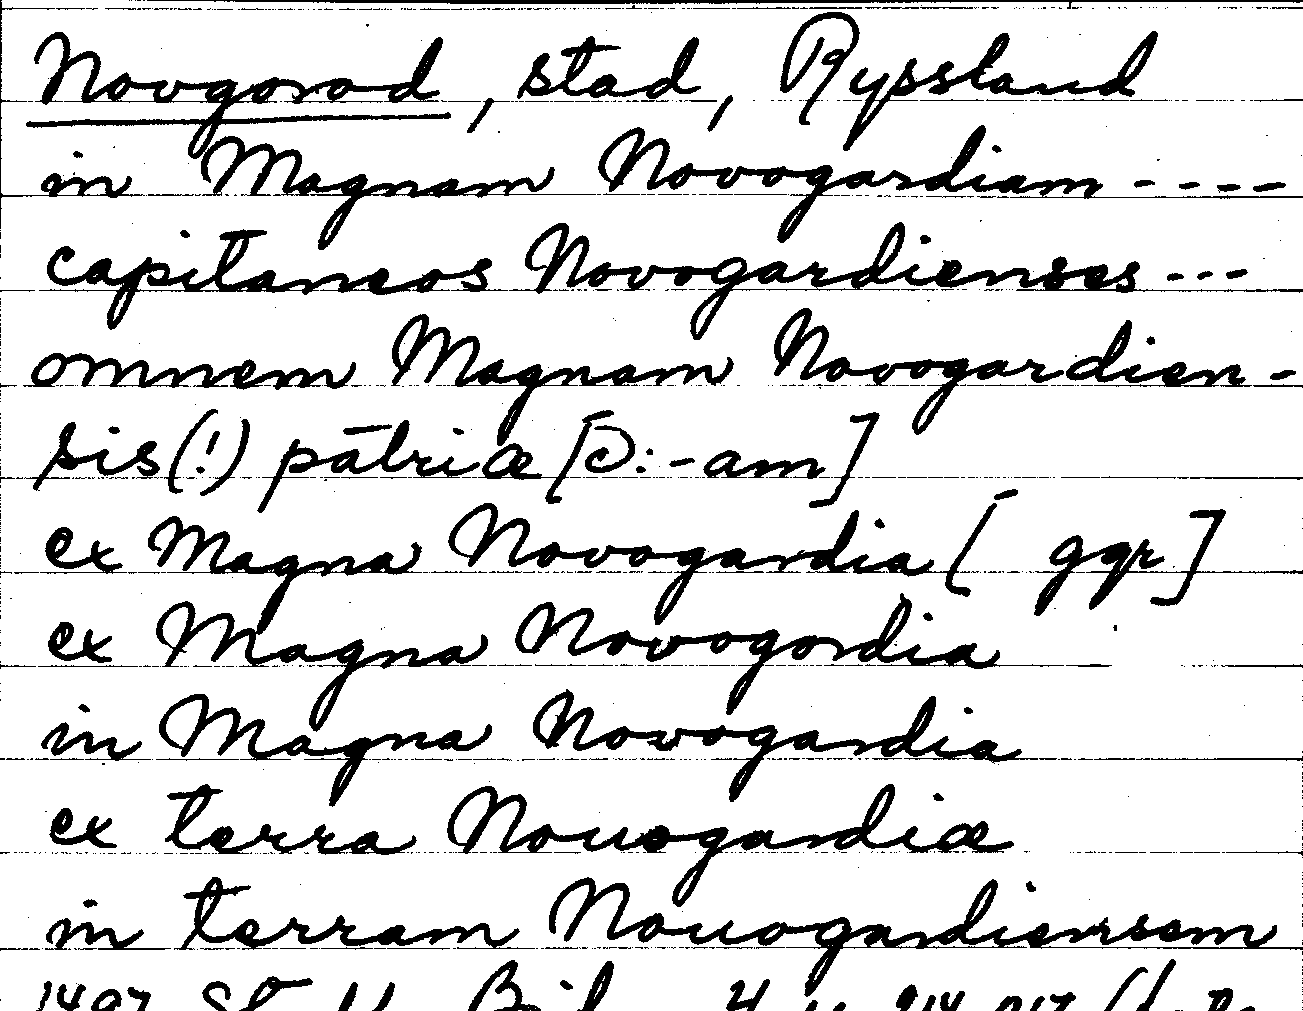 Novgorod, stad, Ryssland
in Magnam Novogardiam ----
capitaneos Novogardienses ---
omnem Magnam Novogardien-
sis(!) pātriæ [ɔ: -am]
ex Magna Novogardia [ ggr]
ex Magna Novogordia
in Magna Novogardia
ex terra Nouogardiæ
in terram Nouogardiensem
1497 St